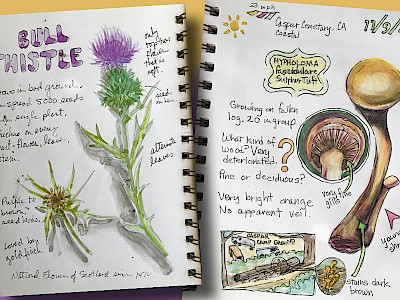 BULL
THISTLE
only
top has
flower
that is
soft.
in bad ground.
spread 5000 seeds
single plant.
on every
leaf, flower,
stem.
seeds
alternate
leaves
Purple to
brown
seed heads.
loved by
goldfinch
National Flower of Scotland since
23 mph
Caspar Cemetary, CA
coastal
11/9/
HYPHOLOMA
Fasciculare
Sulphur Tuft
Growing on fallen
log, 20 in group.
What kind of
wood? Very
deteriorated.
?
Pine or deciduous?
very fine
gills
Very bright orange
No apparent veil.
CASPAR
CAMP GROUND
stains dark
brown
young